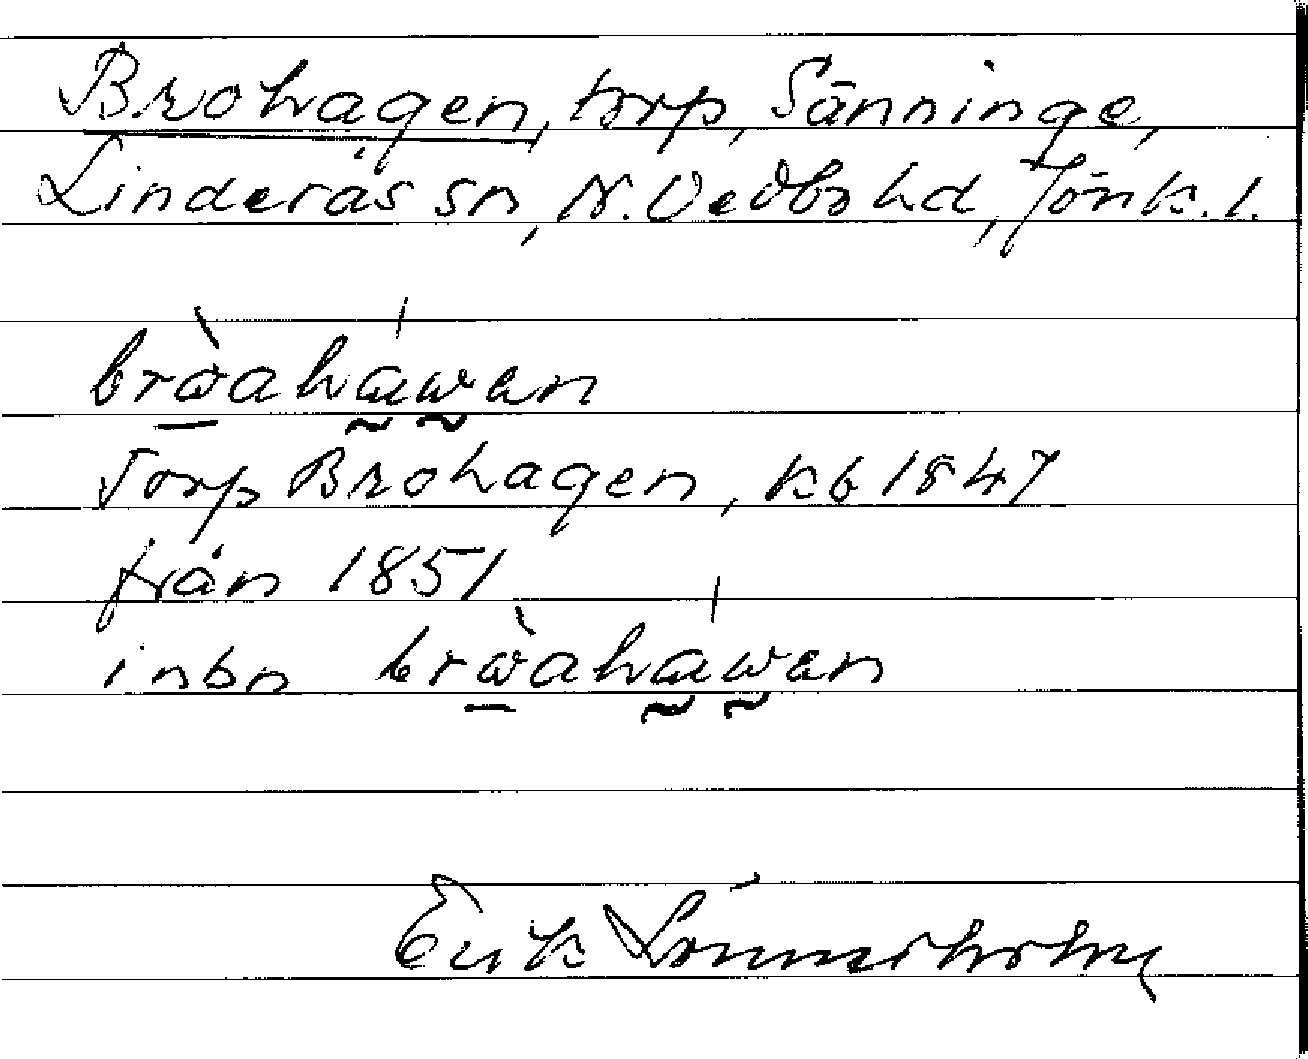 Brohagen, torp, Sänninge,
Linderås sn, N. Vedbo hd, Jönk. l.
bròahawan
Torp Brohagen, kb 1847
från 1851
inbn bròahawan
Erik Lönnerholm